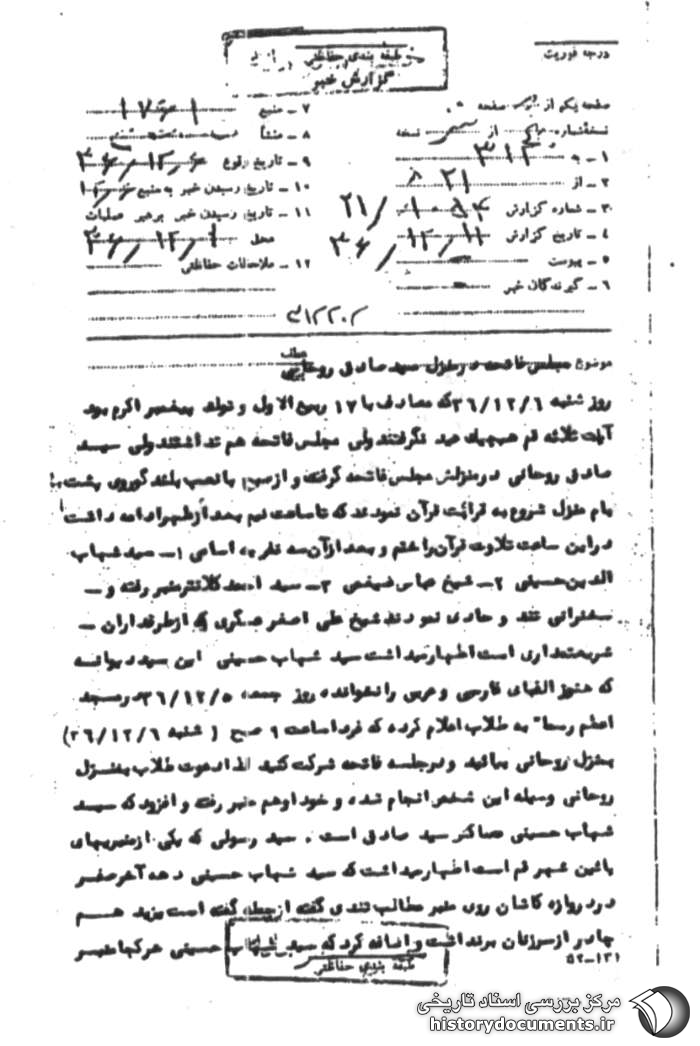 درجه فوریت
طبقه بندی حفاظتی
گزارش خبر
صفحه یکم از صفحه
نسخه شماره از نسخه
۱ـ به ۳۱۲
۲ـ از ۲۱
۳ـ شماره گزارش ۲۱/
۴ـ تاریخ گزارش ۳۶/۱۲/۱۱
۵ـ پیوست
۶ـ گیرندگان خبر
۷ـ منبع
۸ـ منشأ
۹ـ تاریخ وقوع ۳۶/۱۲/۶
۱۰ـ تاریخ رسیدن خبر به منبع
۱۱ـ تاریخ رسیدن خبر برهبر عملیات
محل
۱۲ـ ملاحظات حفاظتی
موضوع مجلس فاتحه در منزل سید صادق روحانی
روز شنبه ۳۶/۱۲/۶ که مصادف با ۱۷ ربیع الاول و تولد پیغمبر اکرم بود
آیات ثلاثه قم هیچیک عید نگرفتند ولی مجلس فاتحه هم نداشتند ولی سید
صادق روحانی در منزلش مجلس فاتحه گرفته و از صبح با نصب بلندگو روی پشت
بام منزل شروع به قرائت قرآن نمودند که تا ساعت نیم بعد از ظهر ادامه داشت
در این ساعت تلاوت قرآن را ختم و بعد از آن سه نفر به اسامی ۱ـ سید شهاب
الدین حسینی ۲ـ شیخ عباس ۳ـ سید احمد کلانتر منبر رفته و ـ
سخنرانی تند و حادی نمودند شیخ علی اصغر عسگری که از طرفداران ـ
شریعتمداری است اظهار میداشت سید شهاب حسینی این سید دیوانه
که هنوز الفبای فارسی و عربی را نخوانده روز جمعه ۳۶/۱۲/۵ در مسجد
اعظم رسما" به طلاب اعلام کرده که فردا ساعت ۹ صبح ( شنبه ۳۶/۱۲/۶)
بمنزل روحانی بیائید و در جلسه فاتحه شرکت کنید لذا دعوت طلاب بمنزل
روحانی وسیله این شخص انجام شده و خود او هم منبر رفته و افزود که سید
شهاب حسینی سید صادق است . سید رسولی که یکی از منبریهای
پائین شهر قم است اظهار میداشت که سید شهاب حسینی دهه آخر صفر
در دروازه کاشان روی منبر مطالب تندی گفته از جمله گفته است یزید هم
چادر از سر زنان برنداشت و اضافه کرد که سید شهاب حسینی هر کجا منبر
طبقه بندی حفاظتی
۵۲-۱۳۱
مرکز بررسی اسناد تاریخی
historydocuments.ir